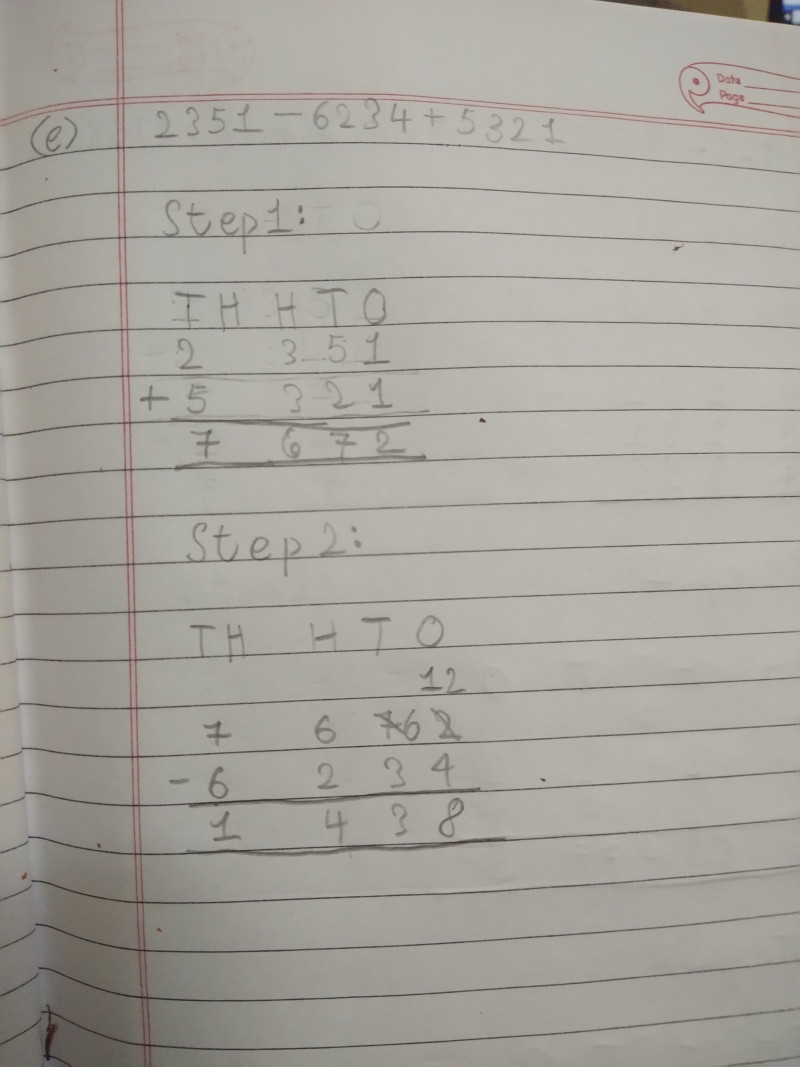 Date
Page
(e) 2351 - 6234 + 5321
Step1:
TH H T O
2 3 5 1
+ 5 3 2 1
7 6 7 2
Step 2:
TH H T O
12
7 6 7 6 2
- 6 2 3 4
1 4 3 8